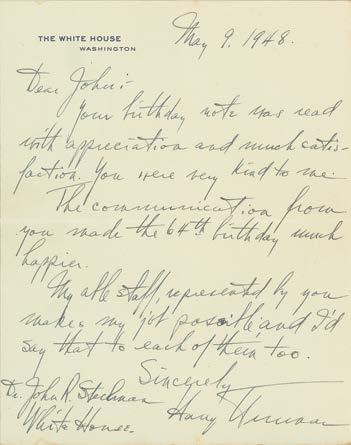 THE WHITE HOUSE
WASHINGTON
May 9, 1948.
Dear John:-
Your birthday note was read
with appreciation and much satis-
faction. You were very kind to me.
The communication from
you made the 64th birthday much
happier.
My able staff, represented by you
makes my job possible, and I'd
say that to each of them too.
Sincerely
Harry Truman
Dr. John R. Steelman
White House.